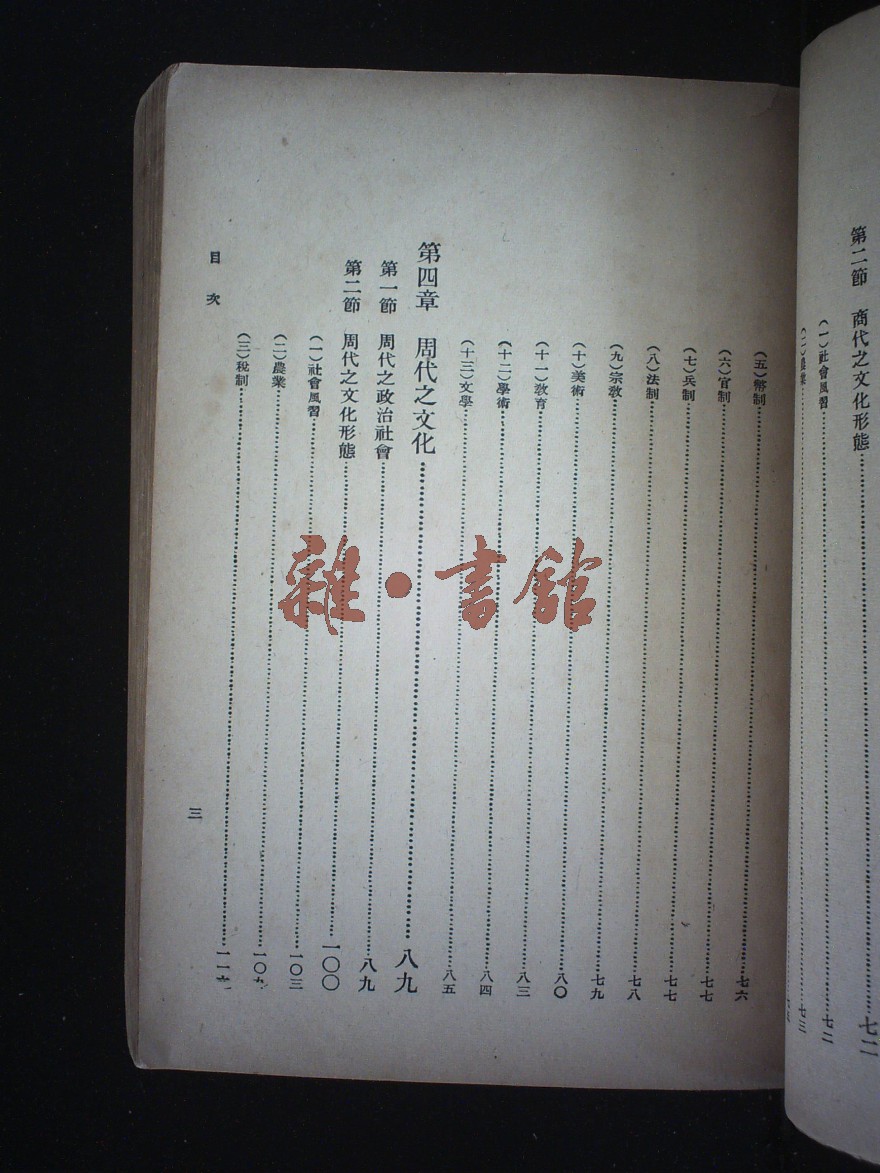 第二節 商代之文化形態……七二
(一)社會風習……七二
(二)農業……七三
(五)幣制……七六
(六)官制……七七
(七)兵制……七七
(八)法制……七八
(九)宗教……七九
(十)美術……八〇
(十一)教育……八三
(十二)學術……八四
(十三)文學……八五
第四章 周代之文化……八九
第一節 周代之政治社會……八九
第二節 周代之文化形態……一〇〇
(一)社會風習……一〇三
(二)農業……一〇六
(三)稅制……
目次
三
雜·書館